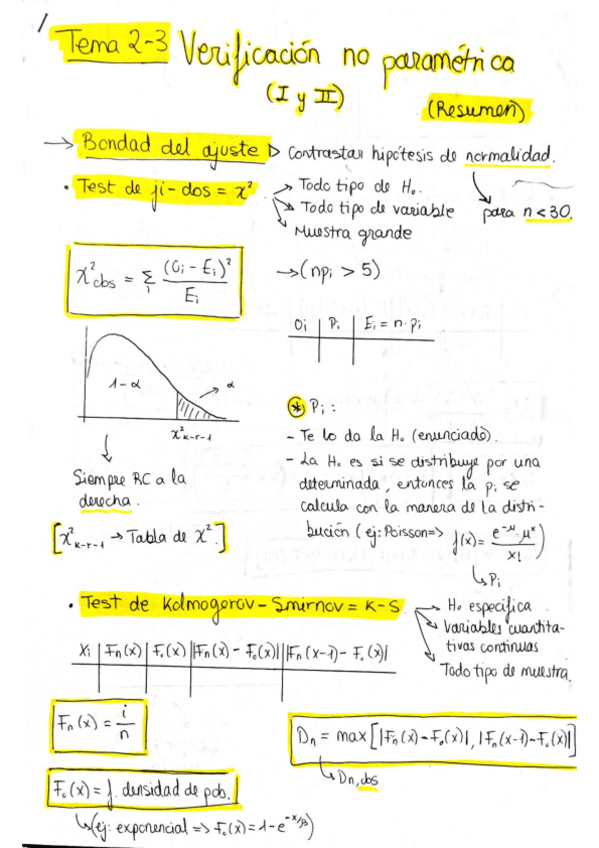 1
Tema 2-3 Verificación no paramétrica
(I y II)
(Resumen)
→ Bondad del ajuste ▷ Contrastar hipótesis de normalidad.
para n < 30.
• Test de ji-dos = χ²
→ Todo tipo de H₀.
→ Todo tipo de variable
→ Muestra grande
χ²obs = Σᵢ (Oᵢ - Eᵢ)² / Eᵢ
→ (npᵢ > 5)
Oᵢ | Pᵢ | Eᵢ = n·pᵢ
1-α
α
χ²κ-r-1
↓
Siempre RC a la
derecha.
[χ²κ-r-1 → Tabla de χ².]
* Pᵢ :
- Te lo da la H₀ (enunciado).
- La H₀ es si se distribuye por una
determinada, entonces la pᵢ se
calcula con la manera de la distri-
bución (ej: Poisson => f(x) = e^-μ · μ^x / x!)
↳ Pᵢ
• Test de Kolmogorov-Smirnov = K-S
→ H₀ específica
→ Variables cuantita-
tivas continuas
→ Todo tipo de muestra.
Xᵢ | Fn(x) | F₀(x) | |Fn(x) - F₀(x)| | |Fn(x-1) - F₀(x)|
Fn(x) = i/n
Dn = max [|Fn(x) - F₀(x)|, |Fn(x-1) - F₀(x)|]
↳ Dn,obs
F₀(x) = f. densidad de pob.
↳ (ej: exponencial => F₀(x) = 1 - e^-x/β)